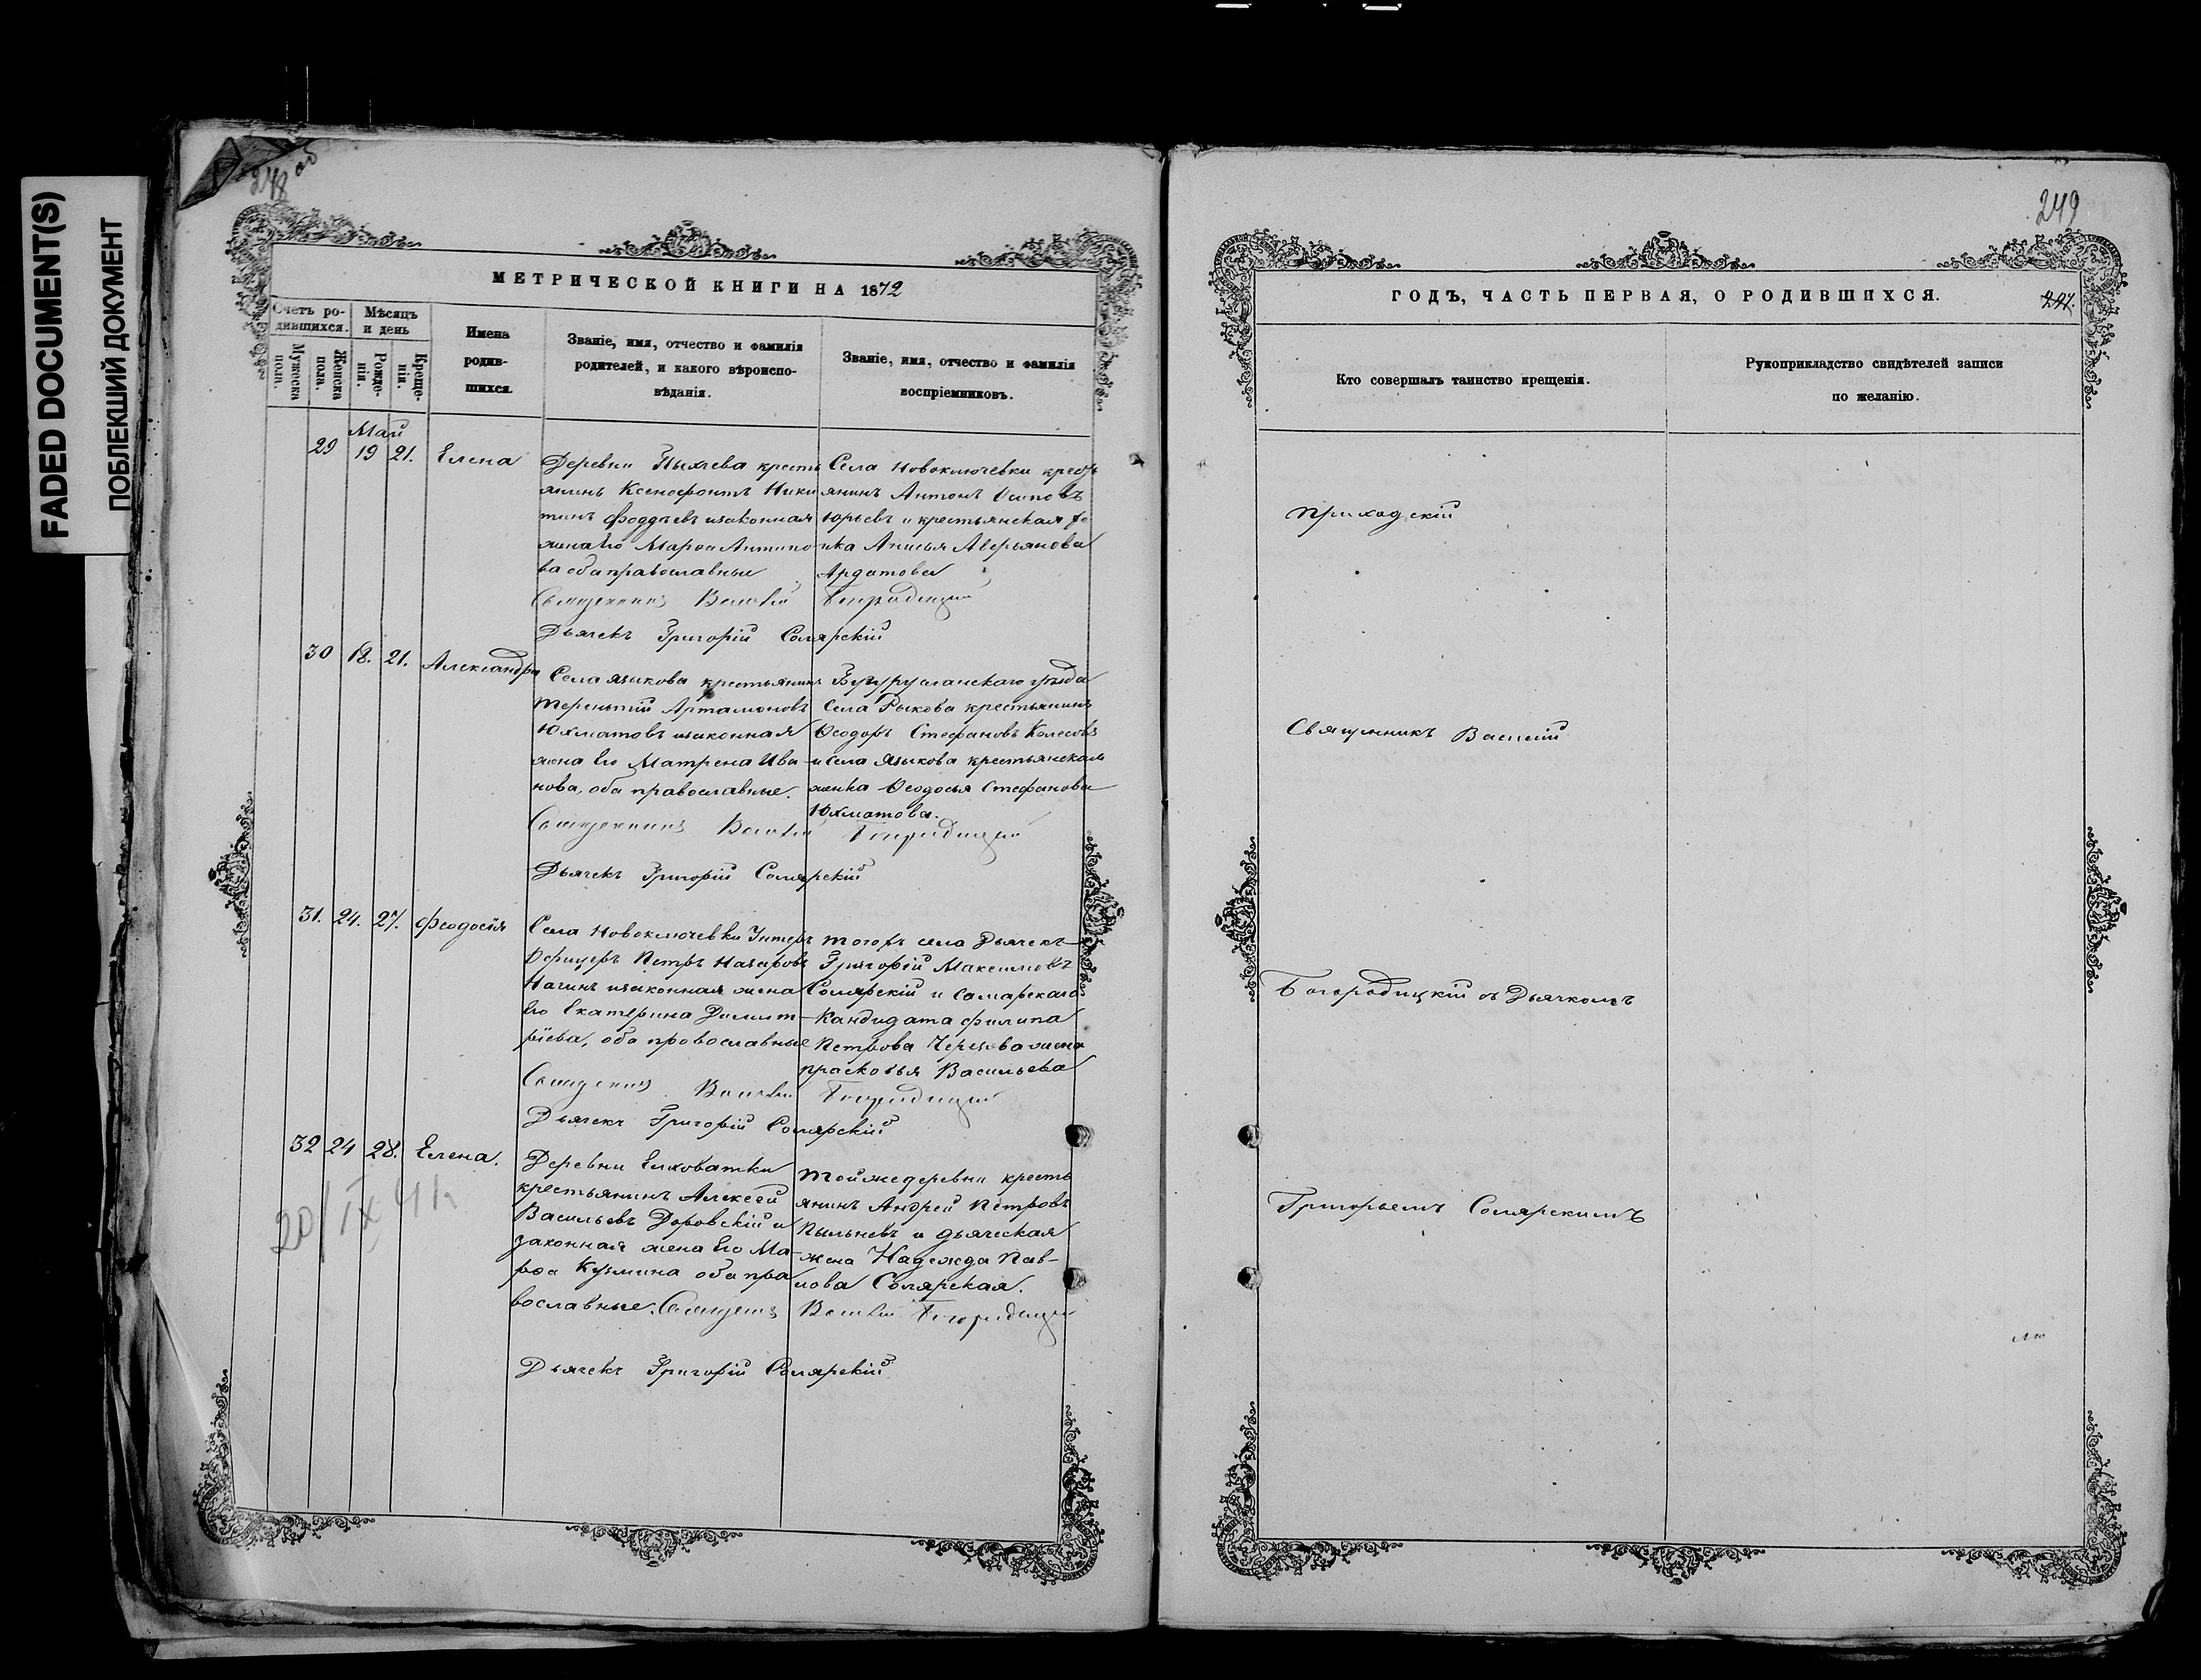 FADED DOCUMENT(S)
ПОБЛЕКШИЙ ДОКУМЕНТ
248 об
МЕТРИЧЕСКОЙ КНИГИ НА 1872
Счетъ ро-
дившихся.
Мужеска
пола.
Женска
пола.
Мѣсяцъ
и день
Рожде-
нія.
Креще-
нія.
Имена
родив-
шихся.
Званіе, имя, отчество и фамилія
родителей, и какого вѣроиспо-
вѣданія.
Званіе, имя, отчество и фамилія
воспріемниковъ.
Май
29 19 21. Елена
Деревни Пыхлева кресть
янинъ Ксенофонтъ Ники
тинъ изаконная
жена его Марѳа Антипо
ва оба православные
Села Новоключевки крест
янинъ Антонъ Осиповъ
Юрьевъ и крестьянская
Анисья Аверьянова
Ардатова
Священникъ Василій Богородицкій
Дьячекъ Григорій Солярскій
30 18. 21. Александра
Села языкова крестьянинъ
терентий Артамоновъ
Юхматовъ изаконная
жена его Матрена Ива
нова, оба православные.
Бугурусланскаго уѣзда
Села Рыкова крестьянинъ
Ѳеодоръ Стефановъ Колесовъ
и села Языкова крестьянская
женка Ѳеодосья Стефанова
Юхматова.
Священникъ Василій Богородицкій
Дьячекъ Григорій Солярскій
31. 24. 27. Феодосія
Села Новоключевки Унтеръ
Офицеръ Петръ Назаровъ
изаконная жена
его Екатерина Димит-
ріева, оба провославные
тогожъ села Дьячекъ
Григорій Максимовъ
Солярскій и Самарскаго
Кандидата филипа
Петрова жена
прасковья Васильева
Священникъ Василій Богородицкій
Дьячекъ Григорій Солярскій
32 24 28. Елена.
Деревни Елховатки
крестьянинъ Алексей
Васильевъ Доровскій и
законная жена его Ма-
рѳа Кузмина оба пра
вославные.
тойжедеревни кресть
янинъ Андрей Петровъ
Пыльневъ и дьяческая
жена Надежда Пав-
лова Солярская.
Священникъ Василій Богородицкій
Дьячекъ Григорій Солярскій
20/IX 41
249
ГОДЪ, ЧАСТЬ ПЕРВАЯ, О РОДИВШИХСЯ.
247.
Кто совершалъ таинство крещенія.
Рукоприкладство свидѣтелей записи
по желанію.
Приходскій
Священникъ Василій
Богородицкій съ Дьячкомъ
Григорьемъ Солярскимъ